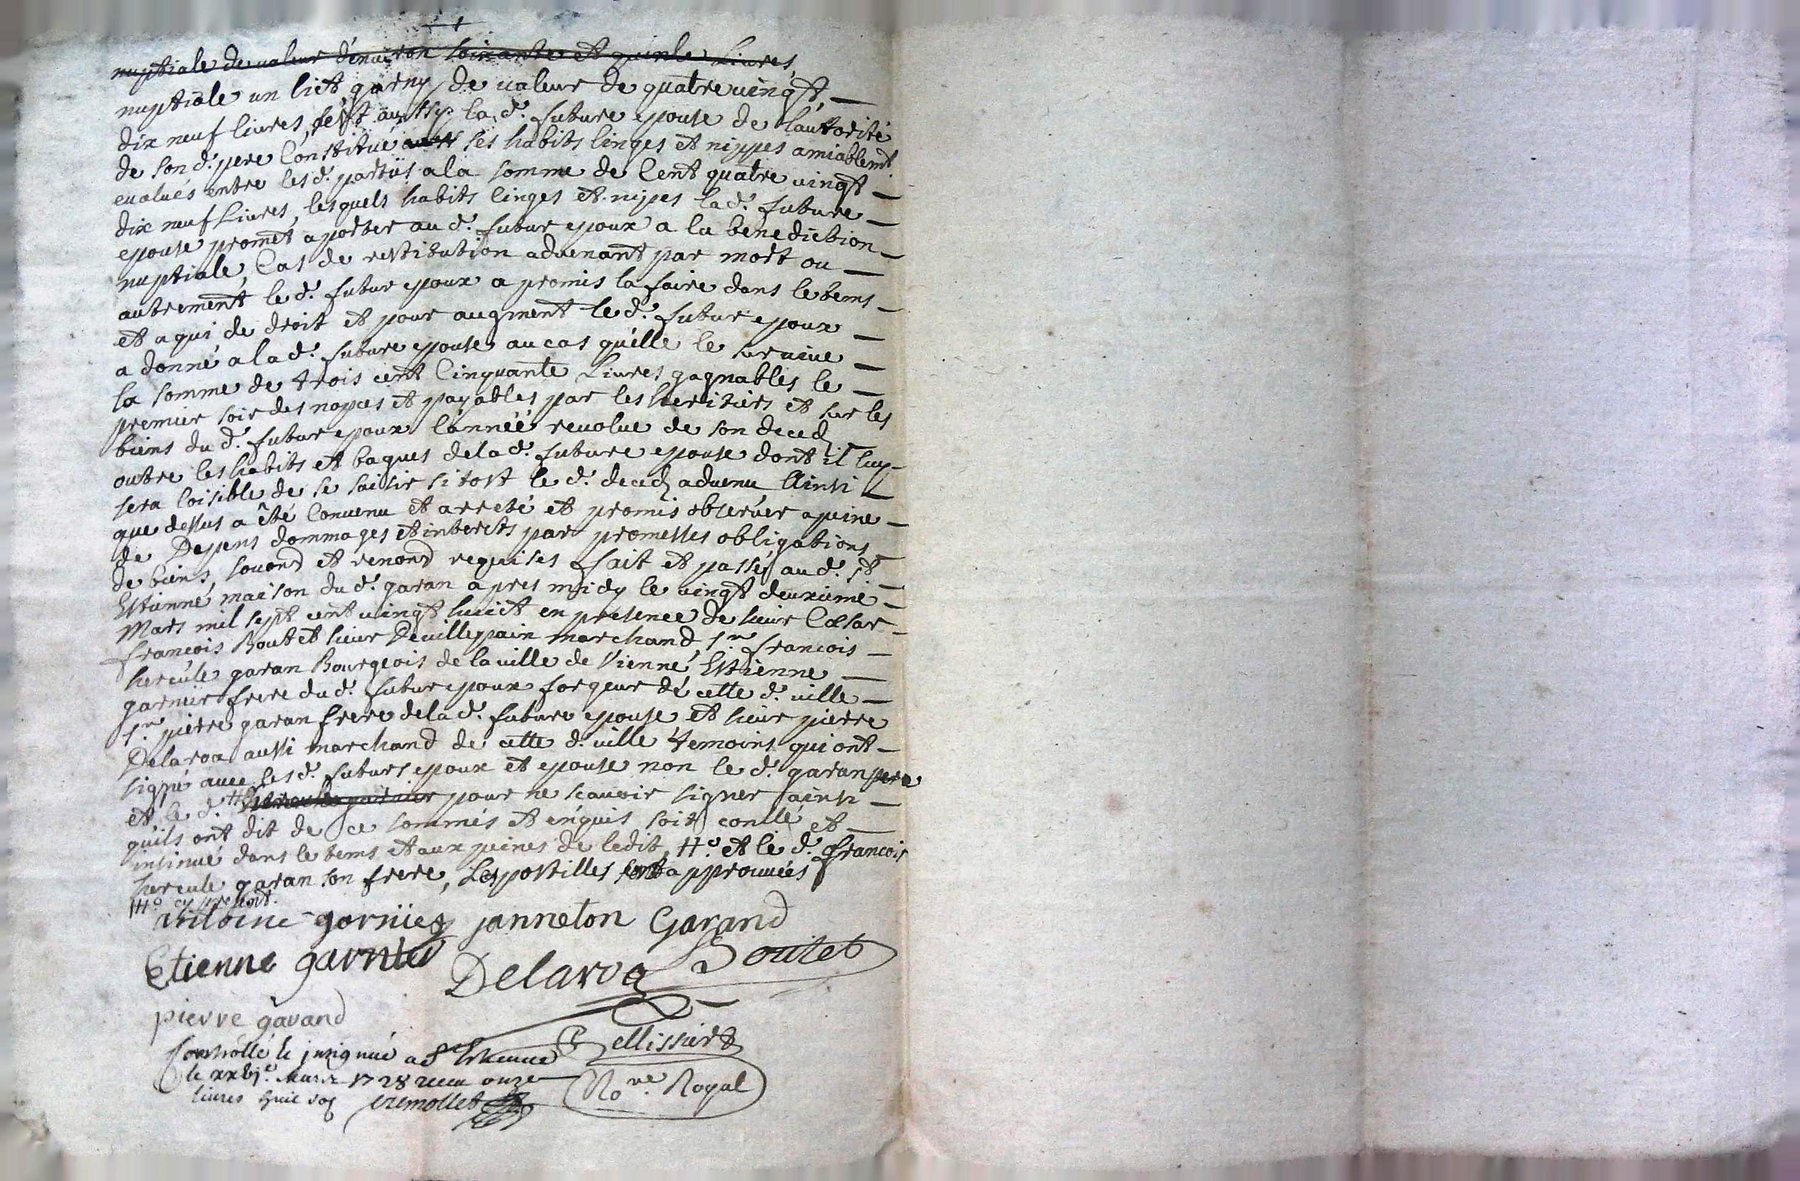 nuptiale de valeur denviron soixante et quinse Livres,
nuptiale un lict garny de valeur de quatre vingt
dix neuf livres, s'est aussy lad. future epouse de l'autorité
de sond. pere Constitué ses habits linges et nippes amiablemt.
evalués entre lesd. parties a la somme de Cent quatre vingt
dix neuf Livres, lesquels habits linges et nipes lad. future
epouse promet aporter aud. futur epoux a la benediction
nuptiale, Cas de restitution advenant par mort ou
autrement led. futur epoux a promis la faire dans le tems
et a qui de droit et pour augment led. futur epoux
a donné a lad. future epouse au cas qu'elle le survive
la somme de trois cent Cinquante Livres gagnables le
premier soir des nopces et payables par les heritiers et sur les
biens dud. futur epoux l'année revolue de son deceds
outre les habits et bagues de lad. future epouse dont il luy
sera loisible de se saisir sitost led. deceds advenu Ainsi
que dessus a été Convenu et arreté et promis observer a peine
de Depens dommages et interets par promesses obligations
de biens, soumond et renond requises fait et passé aud. St
Estienne maison dud. garan apres midy le vingt deuxieme
Mars mil sept cent vingt huict en presence de sieur Cæsar
francois Boutet sieur Devillepain marchand, sr. francois
hercule garan Bourgeois de la ville de Vienne, Estienne
garnier frere dud. futur epoux forgeur de cette d. ville
sr. pierre garan frere de lad. future epouse et sieur pierre
Delaroa aussi marchand de cette d. ville temoins qui ont
signé avec lesd. futurs epoux et epouse non led. garan pere
et le d. pour ne scavoir signer ainsi
quils ont dit de ce sommés et enquis soit conllé et
insinué dans le tems et aux peines de ledit, #o. et le d. francois
hercule garan son frere, Les postilles sont approuvées
Antoine garnier janneton Garand
Etienne garnier Delaroa Boutet
pierre garand
Pellissier
Controllé & insigné a St Estienne
le xxvje. Mars 1728 receu onze
Nore. Royal
livres huit sols